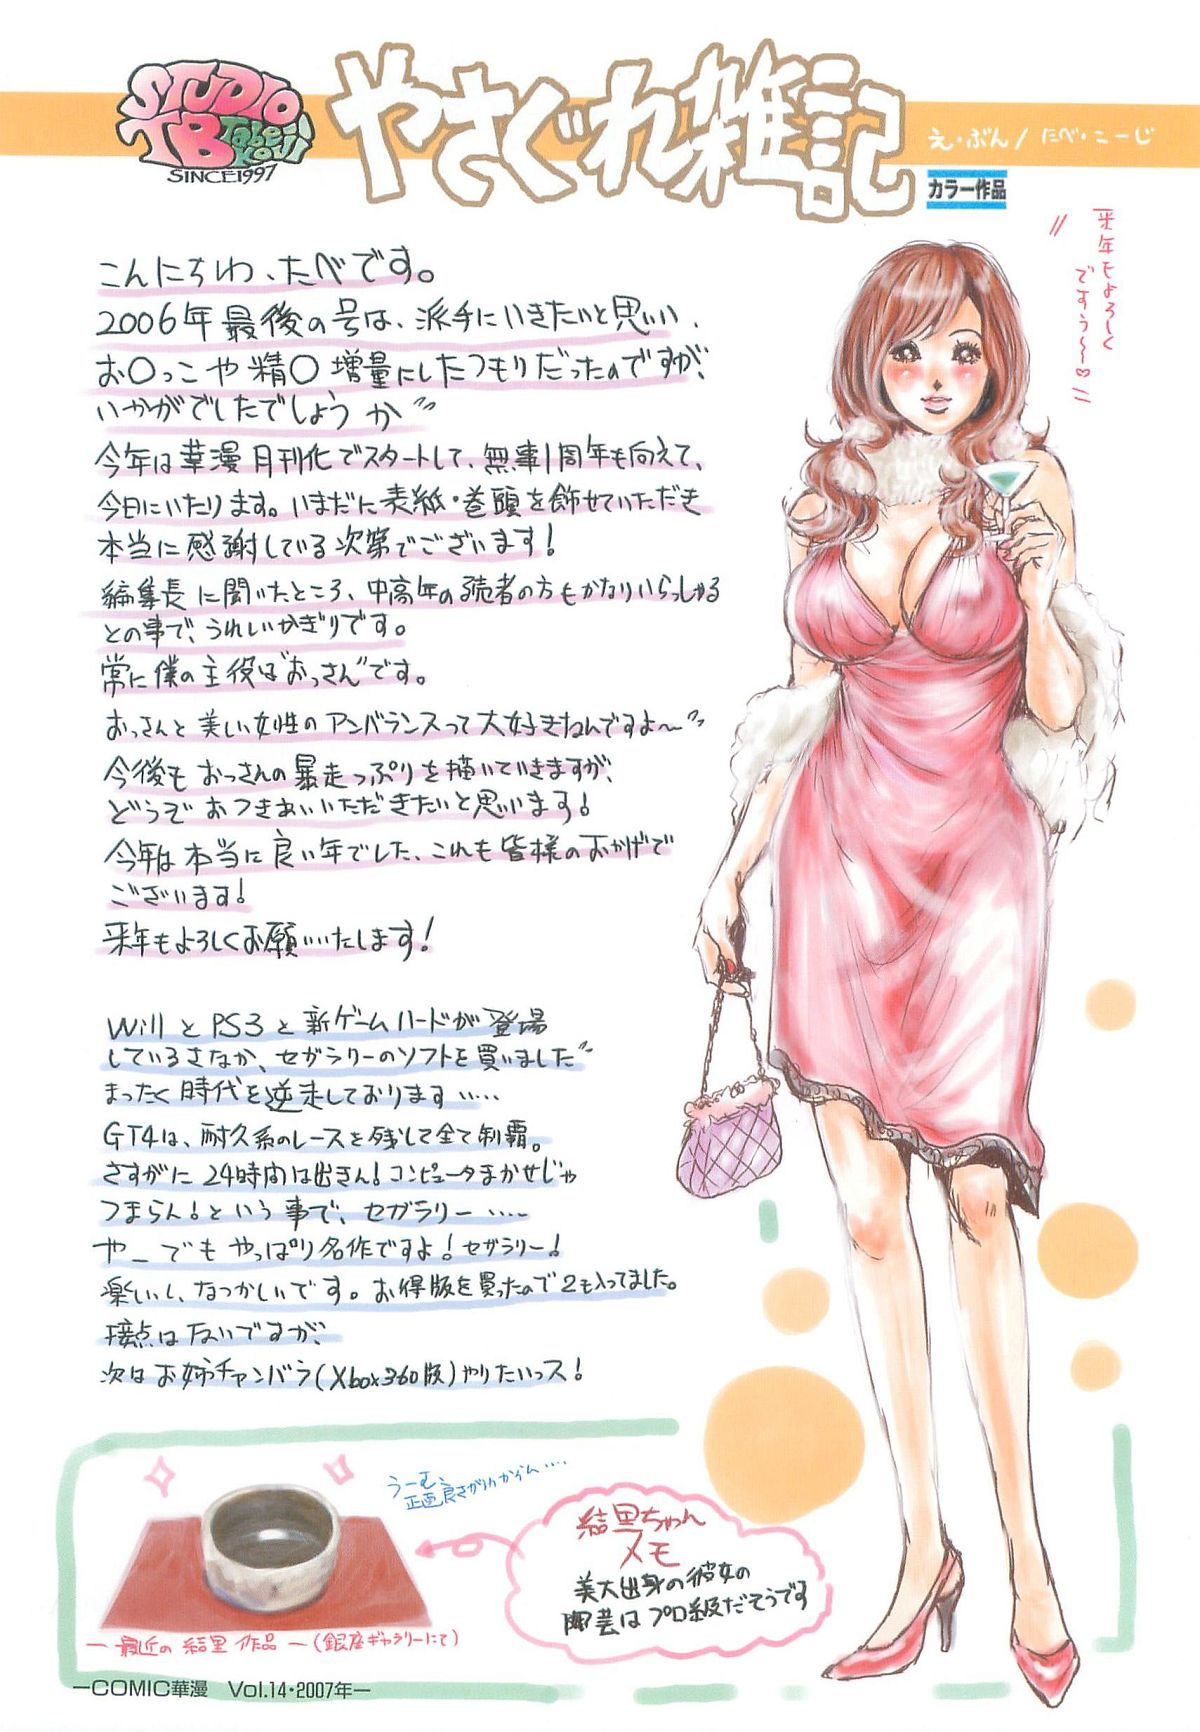 STUDIO
TB Tabe Koji
SINCE1997
やさぐれ雑記
え・ぶん/たべ・こーじ
カラー作品
来年もよろしく
ですぅ〜〜♡
こんにちわ、たべです。
2006年最後の号は、派手にいきたいと思い、
お〇っこや精〇増量にしたつもりだったのですが、
いかがでしたでしょうか"
今年は華漫月刊化でスタートして、無事1周年も向えて、
今日にいたります。いまだに表紙・巻頭を飾せていただき
本当に感謝している次第でございます!
編集長に聞いたところ、中高年の読者の方もかなりいらっしゃる
との事で、うれしいかぎりです。
常に僕の主役は"おっさん"です。
おっさんと美しい女性のアンバランスって大好きなんですよ〜"
今後もおっさんの暴走っぷりを描いていきますが、
どうぞおつきあいいただきたいと思います!
今年は本当に良い年でした、これも皆様のおかげで
ございます!
来年もよろしくお願いいたします!
WiiとPS3と新ゲームハードが登場
しているさなか、セガラリーのソフトを買いました"
まったく時代を逆走しております……
GT4は、耐久系のレースを残して全て制覇。
さすがに24時間は出きん!コンピュータまかせじゃ
つまらん!という事で、セガラリー……
やーでもやっぱり名作ですよ!セガラリー!
楽しいし、なつかしいです。お得版を買ったので2も入ってました。
接点はないですが、
次はお姉チャンバラ(Xbox360版)やりたいっス!
うーむ
良さがわからん……
結里ちゃん
メモ
美大出身の彼女の
陶芸はプロ級だそうです
― 最近の結里作品 ―(銀座ギャラリーにて)
―COMIC華漫 Vol.14・2007年―